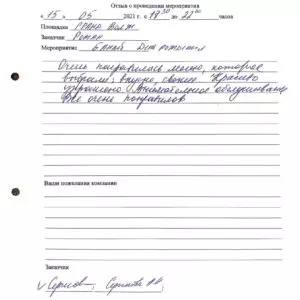 Отзыв о проведении мероприятия
с 15 05 2021 г. с 14 30 до 22 00 часов
Площадка Гранд Волж
Заказчик Роман
Мероприятие Банкет День рождения
Очень понравилось меню, которое
выбрали: вкусно, свежее Красиво
украшено. Внимательное обслуживание
Все очень понравилось
Ваши пожелания компании
Заказчик